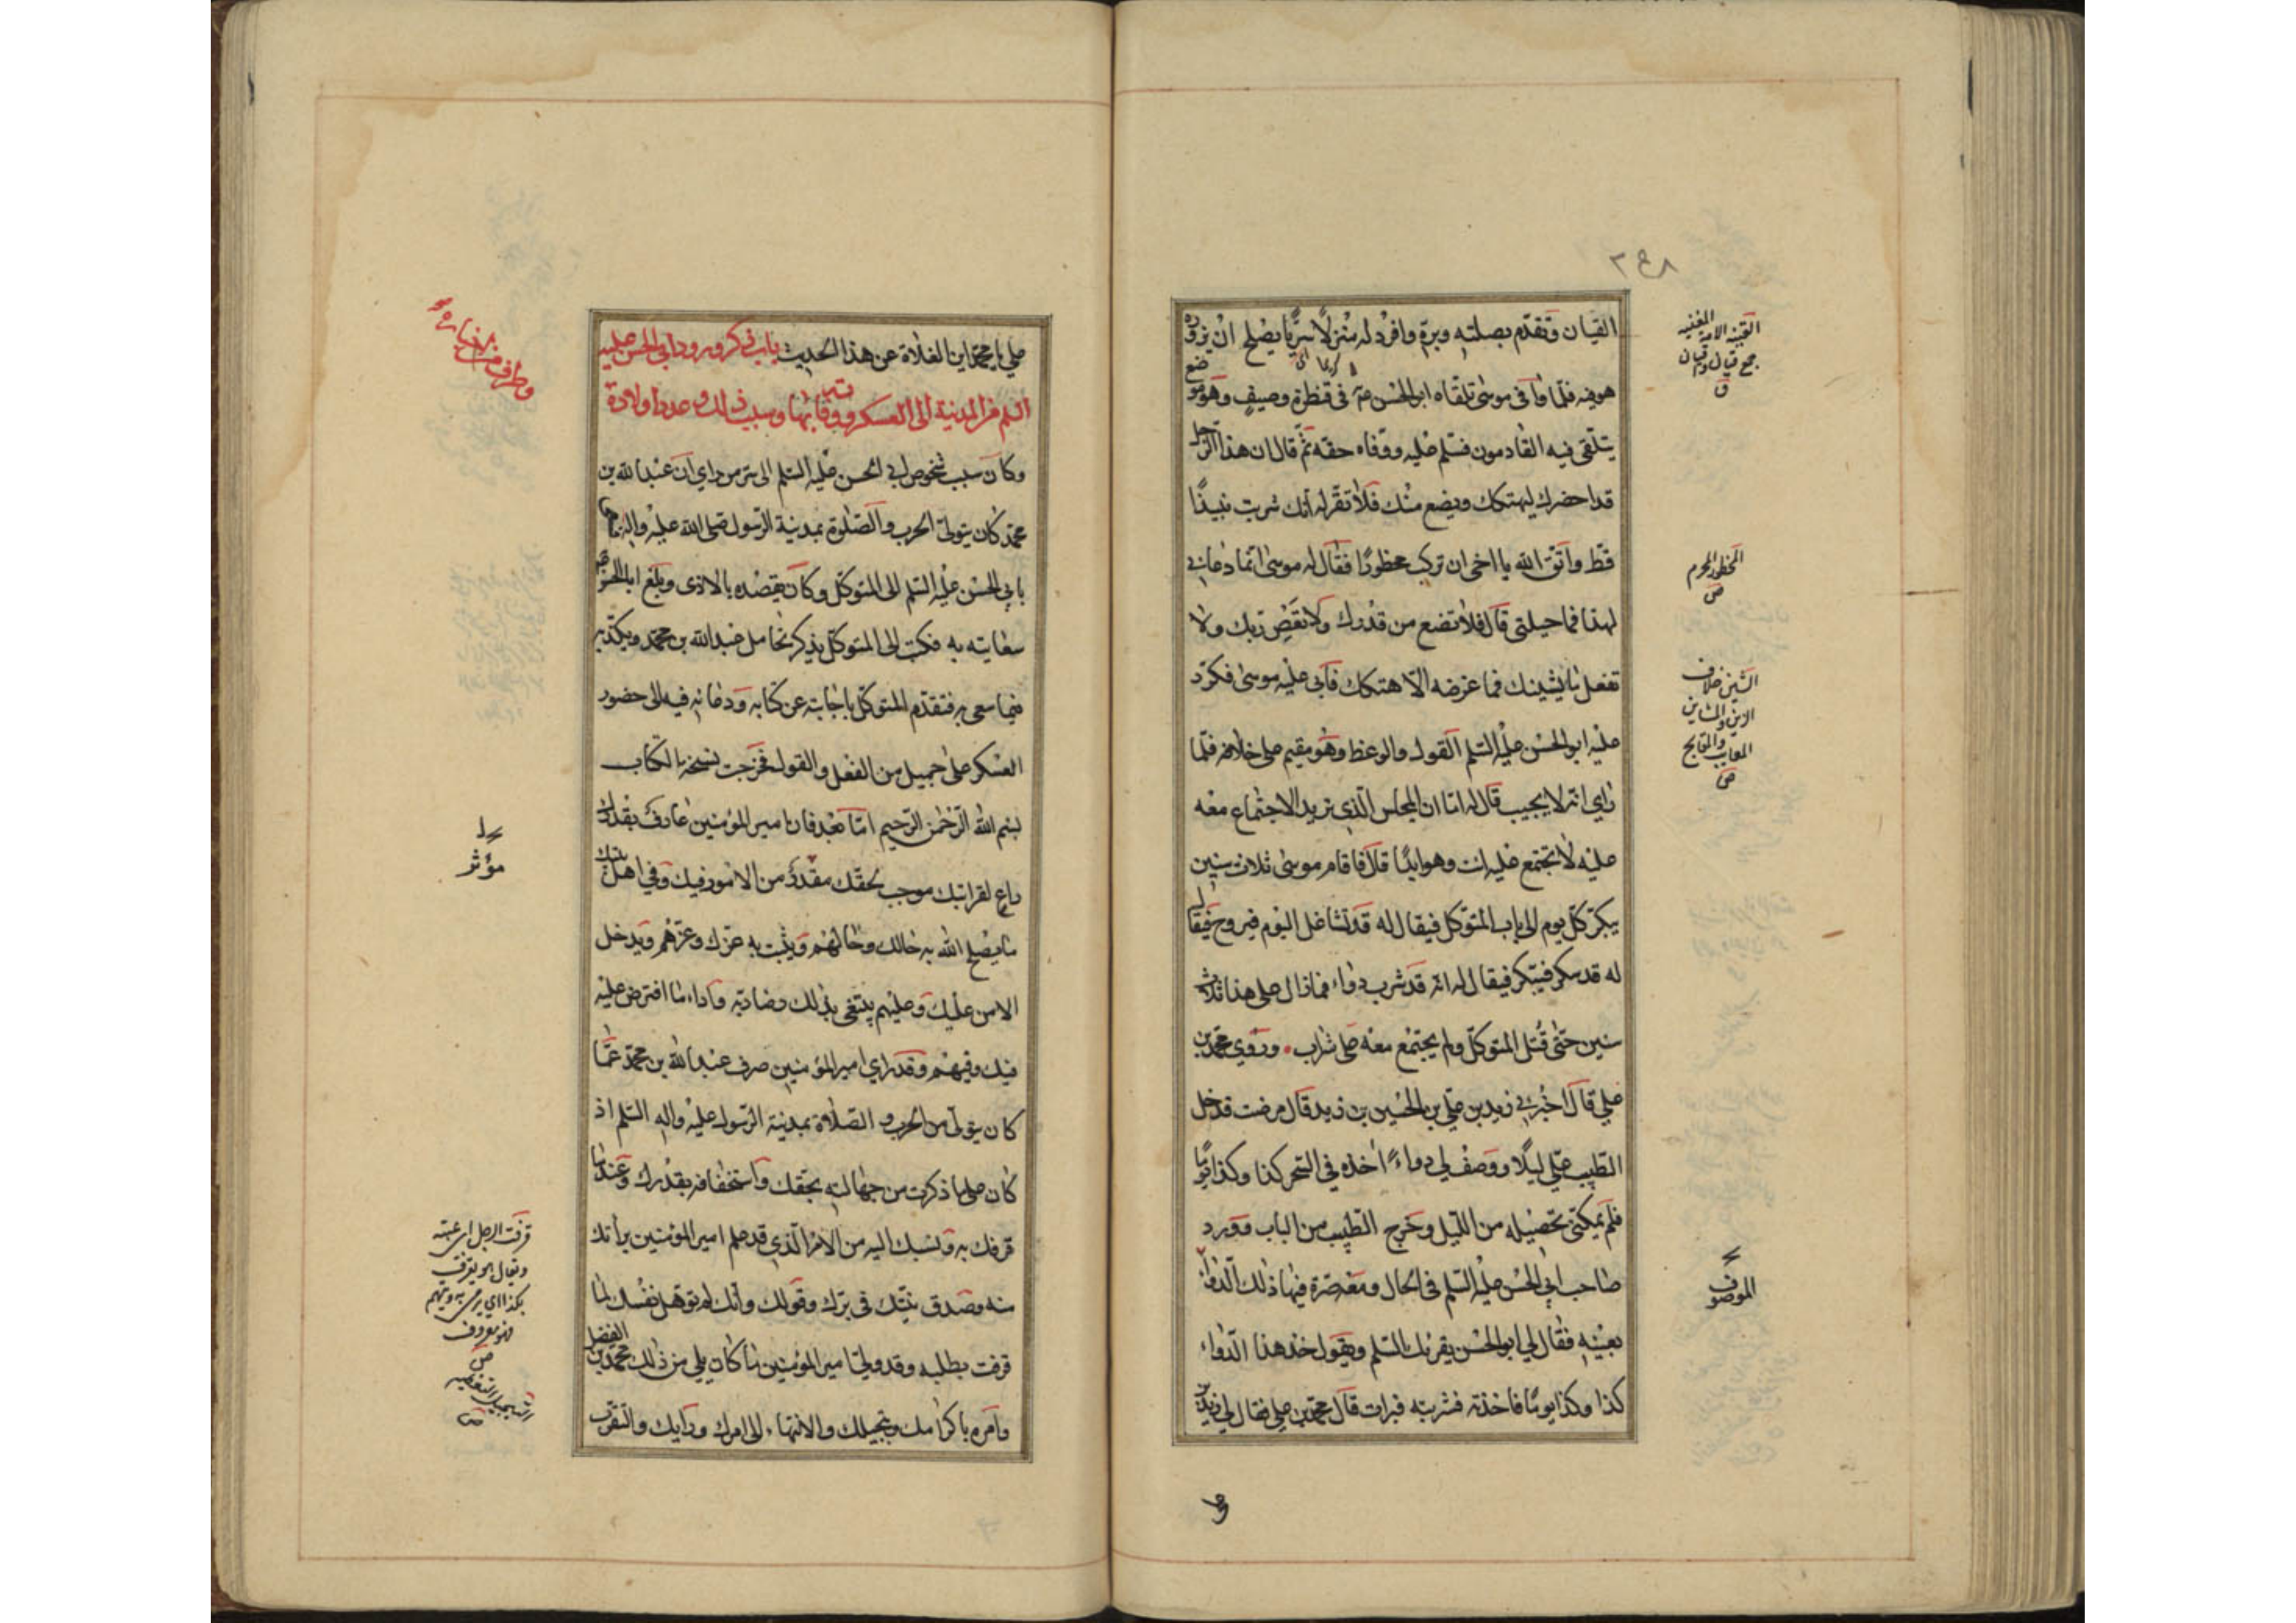 ٣٩٨
القيان وتقدّم بصلته وبرّه وافرد له منزلاً سريّا يصلح ان يزوره
هو فيه فلمّا وافى موسى تلقّاه ابو الحسن ع في قنطرة وصيف وهو موضع
يتلقى فيه القادمون فسلم عليه ووفاه حقه ثمّ قال ان هذا الرّجل
قد احضرك ليهتكك ويضع منك فلا تقرّ له أنك شربت نبيذًا
قطّ واتّق الله يا اخى ان تركب محظورًا فقال له موسى انّما دعاني
لهذا فما حيلتى قال فلا تضع من قدرك ولا تعص ربك ولا
تفعل ما يشينك فما غرضه الّا هتكك فأبى عليه موسى فكرّر
عليه ابو الحسن عليه السّلم القول والوعظ وهو مقيم على خلافه فلمّا
راي انّه لا يجيب قال له امّا ان المجلس الّذي تريد الاجتماع معه
عليه لا تجتمع عليه انت وهو ابدًا قال فاقام موسى ثلاث سنين
يبكّر كلّ يوم الى باب المتوكل فيقال له قد تشاغل اليوم فيروح فيقال
له قد سكر فيبكر فيقال له انّه قد شرب دواء فما زال على هذا ثلاث
سنين حتّى قُتل المتوكّل ولم يجتمع معه على شراب وروي محمّد بن
علي قال اخبرني زيد بن علي بن الحسين بن زيد قال مرضت فدخل
الطّبيب علي ليلًا ووصف لي دواءً اخذه في السّحر كذا وكذا يومًا
فلم يمكنّى تحصيله من اللّيل وخرج الطّبيب من الباب فورد
صاحب ابي الحسن عليه السّلم في الحال ومعه صرّة فيها ذلك الّدواء
بعينه فقال لي ابو الحسن يقرئك السّلم ويقول خذ هذا الدّواء
كذا وكذا يومًا فاخذته فشربته فبرات قال محمّد بن علي فقال لي زيد بن
القينة الامة المغنيه
جمع قيان
ق
المحظور المحرم
ص
الشين خلاف
الزين والمشاين
المعايب والمقابح
ص
الموصوف
علي يا محمّد اين الغلاة عن هذا الحديث باب ذكر ورود ابي الحسن عليه
السلم من المدينة الى العسكر ووفاته بها وسبب ذلك وعدد اولاده
وطرف من اخباره
وكان سبب شخوص ابي الحسن عليه السّلم الى سرّ من راي ان عبد الله بن
محمّد كان يتولّى الحرب والصّلوة بمدينة الرّسول صلى الله عليه واله فسعى
بابي الحسن عليه السّلم الى المتوكّل وكان يقصده بالاذى وبلغ ابا الحسن
سعايته به فكتب الى المتوكّل يذكر تحامل عبد الله بن محمّد ويكذّبه
فيما سعى به فتقدّم المتوكّل باجابته عن كتابه ودعائه فيه الى حضور
العسكر على جميل من الفعل والقول فخرجت نسخة الكتاب
بسم الله الرّحمن الرّحيم امّا بعد فان امير المؤمنين عارف بقدرك
راع لقرابتك موجب لحقّك مقدّر من الامور فيك وفي اهل بيتك
ما يصلح الله به حالك وحالهم ويثبت به عزّك وعزّهم ويدخل
الامن عليك وعليهم يبتغى بذلك رضا ربّه واداء ما افترض عليه
فيك وفيهم وقد راي امير المؤمنين صرف عبد الله بن محمّد عمّا
كان يتولّى من الحرب والصّلاة بمدينة الرّسول عليه واله السّلم اذ
كان على ما ذكرت من جهالته بحقك واستخفافه بقدرك وعند ما
قرفك به ونسبك اليه من الامر الّذي قد علم امير المؤمنين براتك
منه وصدق نيّتك في برّك وقولك وانك لم تؤهل نفسك لما
قرفت بطلبه وقد ولّى امير المؤمنين ما كان يلي من ذلك محمّد بن الفضل
وامره باكرامك وتبجيلك والانتهاء الى امرك ورايك والتقرّب
مؤثر
قرفت الرجل اى عبته
ويقال هو يقرف
بكذا اي يرمى به ويتهم
فهو مقروف
ص
التبجيل التعظيم
ص